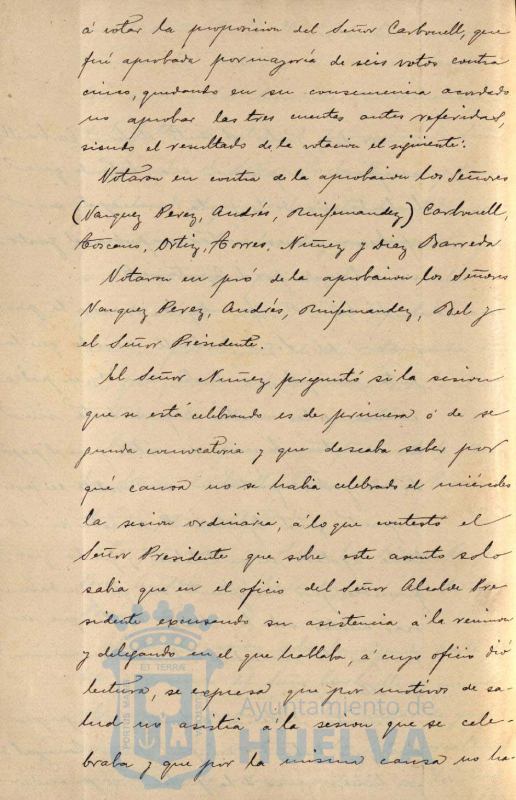 á votar la proposicion del Señor Carbonell, que
fué aprobada por mayoría de seis votos contra
cinco, quedando en su consecuencia acordado
no aprobar las tres cuentas antes referidas,
siendo el resultado de la votacion el siguiente:
Votaron en contra de la aprobacion los Señores
(Vazquez Perez, Andrés, Rinfernandez) Carbonell,
Toscano, Ortiz, Torres, Nuñez y Diaz Barreda
Votaron en pró de la aprobacion los Señores
Vazquez Perez, Andrés, Rinfernandez, Bel y
el Señor Presidente.
El Señor Nuñez preguntó si la sesion
que se está celebrando es de primera ó de se
gunda convocatoria y que deseaba saber por
qué causa no se habia celebrado el miércoles
la sesion ordinaria, á lo que contestó el
Señor Presidente que sobre este asunto solo
sabia que en el oficio del Señor Alcalde Pre
sidente excusando su asistencia á la reunion
y delegando en el que hablaba, á cuyo oficio dió
lectura, se expresa que por motivos de sa-
lud no asistia á la sesion que se cele-
braba y que por la misma causa no ha-
PORTUS MARIS ET TERRAE
Ayuntamiento de
HUELVA